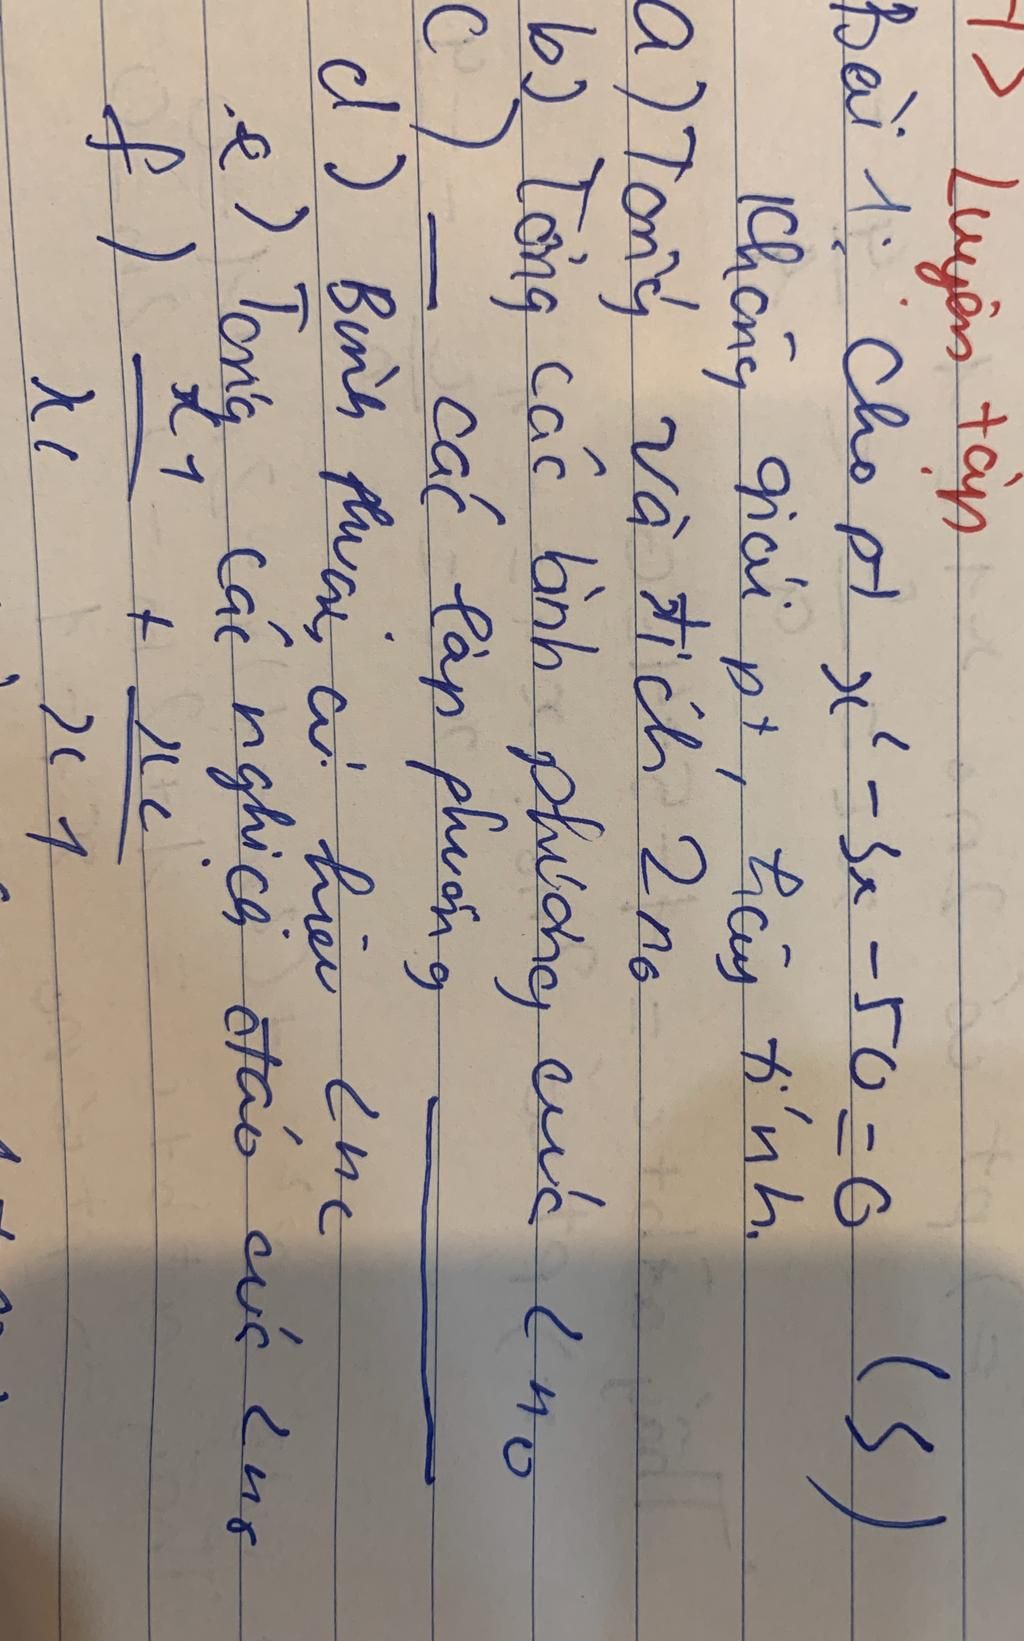 H> Luyện tập
Bài 1: Cho pt x² - 3x - 50 = 0 (3)
Không giải pt, hãy tính.
a) Tổng và tích 2 no
b) Tổng các bình phương của 2 no
c) _ các lập phương ___
d) Bình phương của hiệu 2 no
e) Tổng các nghịch đảo của 2 no
f) x1/x2 + x2/x1